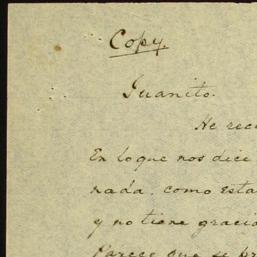 Copy.
Juanito.
He reci
En lo que nos dice
nada, como esta
y no tiene gracia
Parece que se pr